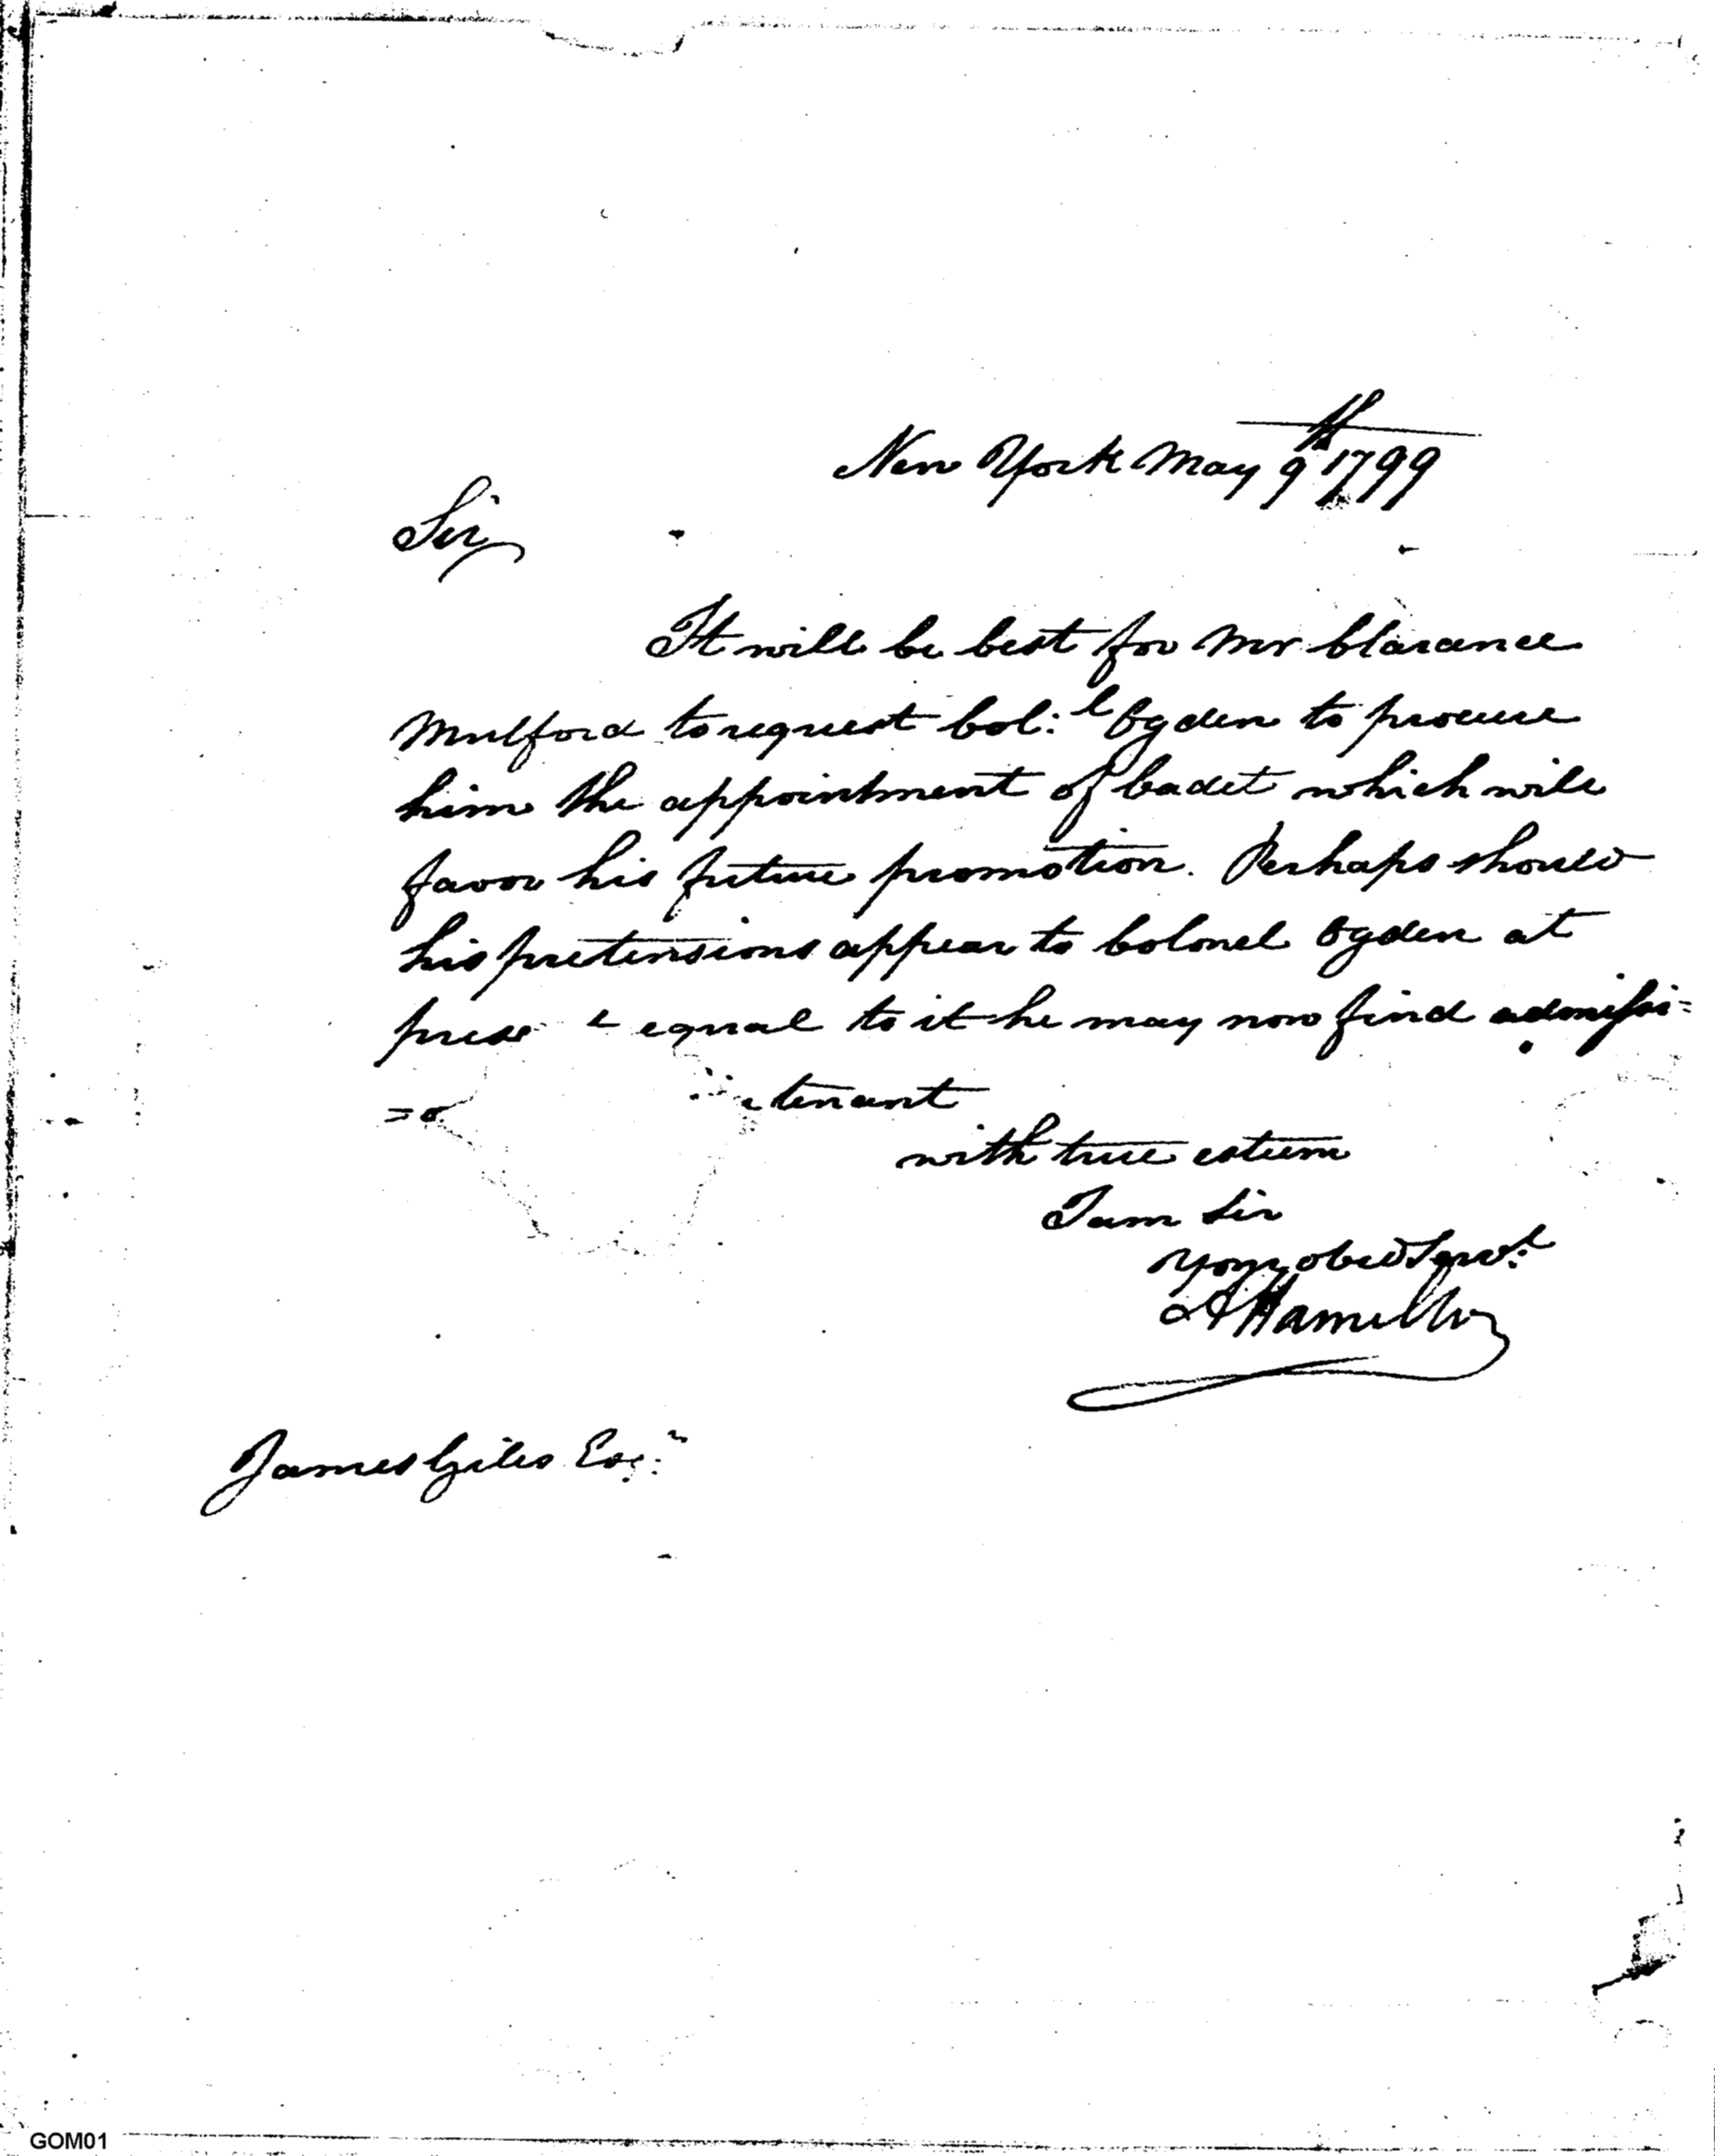 New York May 9th 1799
Sir
It will be best for Mr Clarance
Mulford to request Col:l Ogden to procure
him the appointment of Cadet which will
favor his future promotion. Perhaps should
his pretensions appear to Colonel Ogden at
prese t equal to it he may now find admissi=
=o tenant
with true esteem
I am Sir
Your obed Servt:
A Hamilton
James Giles Esqr:
GOM01